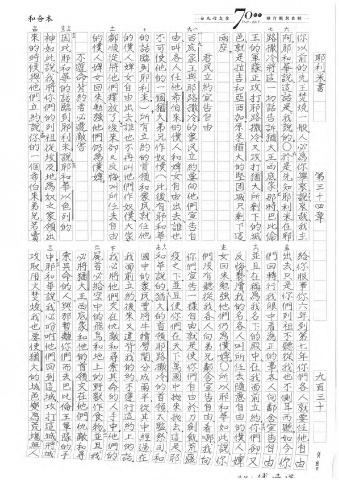 和合本
70
耶利米書　第三十四章　九百三十
你以前的先王焚燒一般人必為你舉哀說哀哉我主
阿耶和華說這話是我說的○於是先知耶利米在耶
路撒冷將這一切話告訴猶大王西底家那時巴比倫
王的軍隊正攻打耶路撒冷又攻打猶大所剩下的城
邑就是拉吉和亞西加原來猶大的堅固城只剩下這
兩座
君民立約宣告自由
西底家王與耶路撒冷的眾民立約要向他們宣告自
由叫各人任他希伯來的僕人和婢女自由出去誰也
不可使他的一個猶大弟兄作奴僕(此後有耶和華
的話臨到耶利米)所有立約的首領和眾民就任他
的僕人婢女自由出去誰也不再叫他們作奴僕大家
都順從將他們釋放了後來卻又反悔叫所任去自由
的僕人婢女回來勉強他們仍為僕婢
不遵命背約者必遭敗害
因此耶和華的話臨到耶利米說耶和華以色列的
神如此說我將你們的列祖從埃及地為奴之家領出
來的時候與他們立約說你的一個希伯來弟兄若賣
給你服事你六年到第七年你們各人就要任他
出去只是你們列祖不聽從我也不側耳而聽如今你
們回轉行我眼中看為正的事各人向鄰舍宣告自由
並且在稱為我名下的殿中在我面前立約你們卻又
反悔褻瀆我的名各人叫所任去隨意自由的僕人婢
女回來勉強他們仍為僕婢○所以耶和華如此說你
們沒有聽從我各人向弟兄鄰舍宣告自由看哪我向
你們宣告一樣自由就是使你們自由於刀劍饑荒瘟
疫之下並且使你們在天下萬國中拋來拋去這是耶
和華說的猶大的首領耶路撒冷的首領太監祭司和
國中的眾民曾將牛犢劈開分成兩半從其中經過在
我面前立約後來又違背我的約不遵行這約上的話
我必將他們交在仇敵和尋索其命的人手中他們的
屍首必給空中的飛鳥和地上的野獸作食物並且我
必將猶大王西底家和他的首領交在他們仇敵和尋
索其命的人與那暫離你們而去巴比倫王軍隊的手
中耶和華說我必吩咐他們回到這城攻打這城將城
攻取用火焚燒我也要使猶大的城邑變為荒場無人